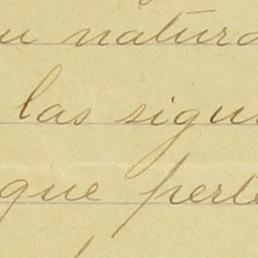 su natura
las sigui
que perte